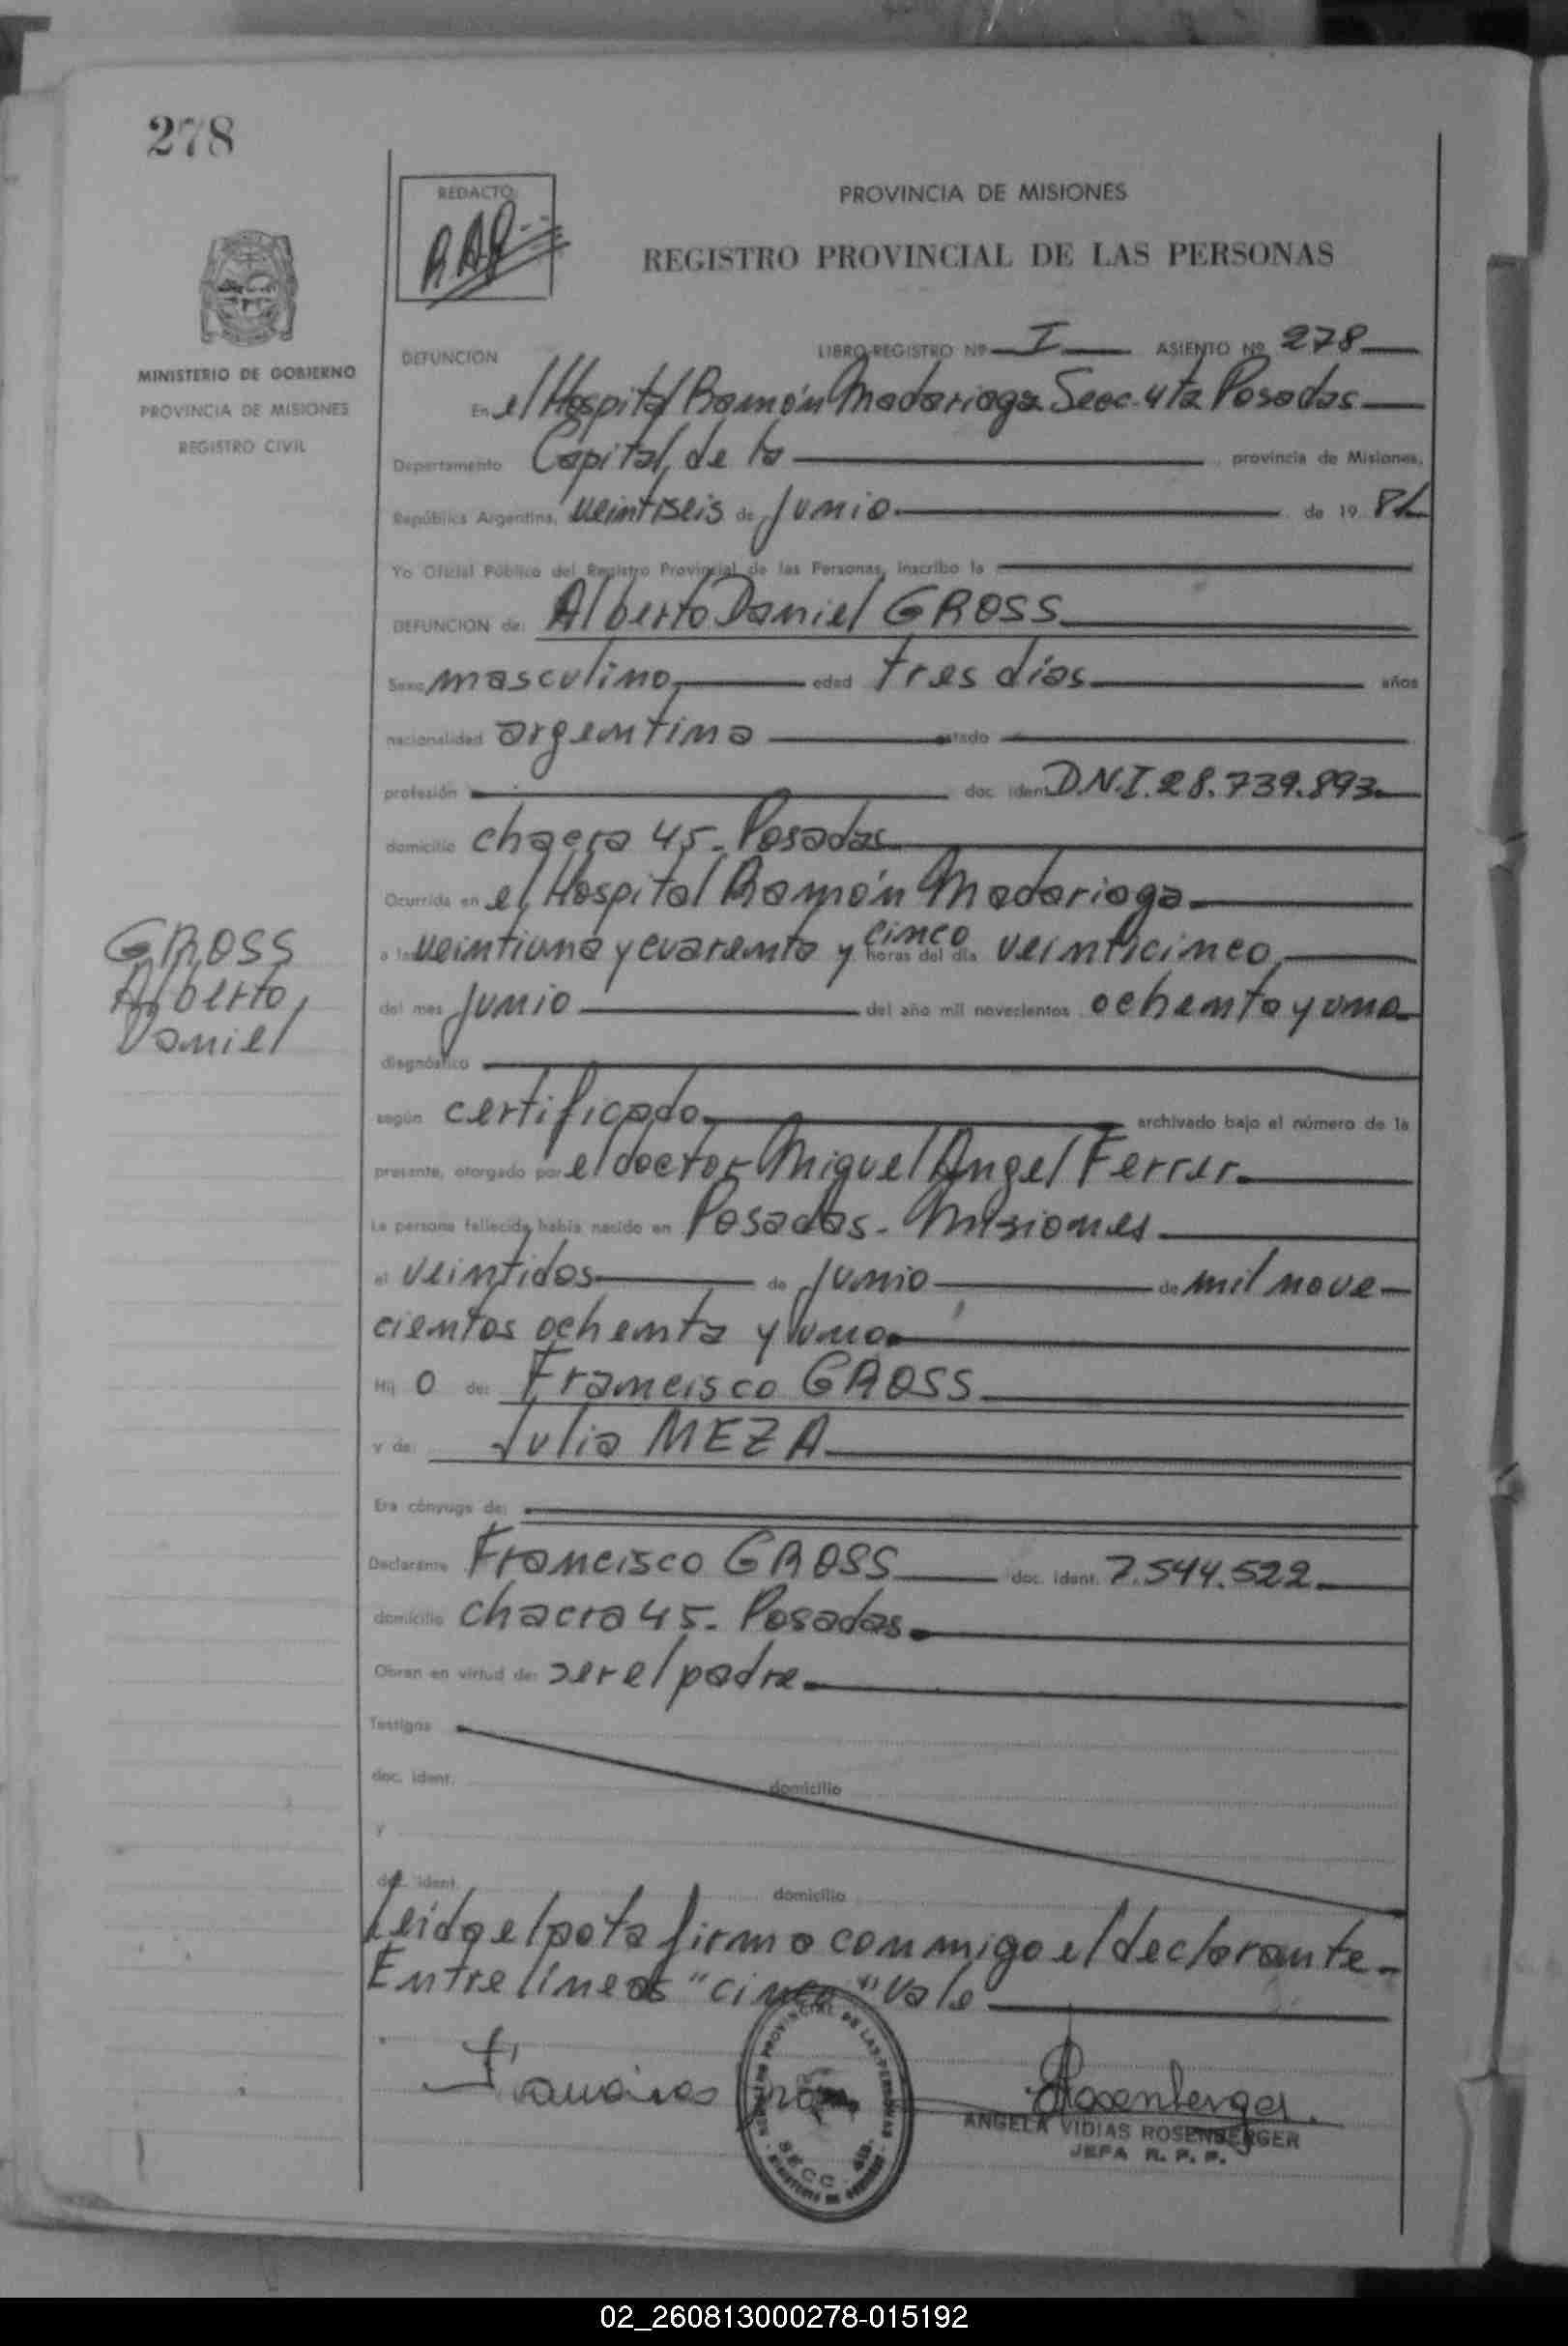 278
REDACTO
PROVINCIA DE MISIONES
REGISTRO PROVINCIAL DE LAS PERSONAS
MINISTERIO DE GOBIERNO
PROVINCIA DE MISIONES
REGISTRO CIVIL
DEFUNCION LIBRO-REGISTRO Nº I ASIENTO Nº 278
En el Hospital Ramón Madariaga Secc. 4ta Posadas
Departamento Capital, de la provincia de Misiones,
República Argentina, veintiseis de Junio de 19 81
Yo Oficial Público del Registro Provincial de las Personas, inscribo la
DEFUNCION de: Alberto Daniel GROSS
Sexo masculino, edad tres días años
nacionalidad argentina estado
profesión doc. ident. D.N.I. 28.739.893
domicilio chacra 45. Posadas
Ocurrida en el Hospital Ramón Madariaga
a las veintiuna y cuarenta y cinco horas del día veinticinco,
del mes Junio del año mil novecientos ochenta y uno
diagnóstico
según certificado, archivado bajo el número de la
presente, otorgado por el doctor Miguel Angel Ferrer
La persona fallecida había nacido en Posadas - Misiones
el veintidos de Junio de mil nove-
cientos ochenta y uno
Hij o de: Francisco GROSS
y de: Julia MEZA
Era cónyuge de:
Declarante Francisco GROSS doc. ident. 7.544.522
domicilio chacra 45. Posadas
Obran en virtud de: ser el padre
Testigos
doc. ident. domicilio
y
doc. ident. domicilio
Leida el pata firma conmigo el declarante-
Entre líneas "cinco" vale
GROSS
Alberto
Daniel
Rosenberger
ANGELA VIDIAS ROSENBERGER
JEFA R. P. P.
SECC. 4ta.
02_260813000278-015192